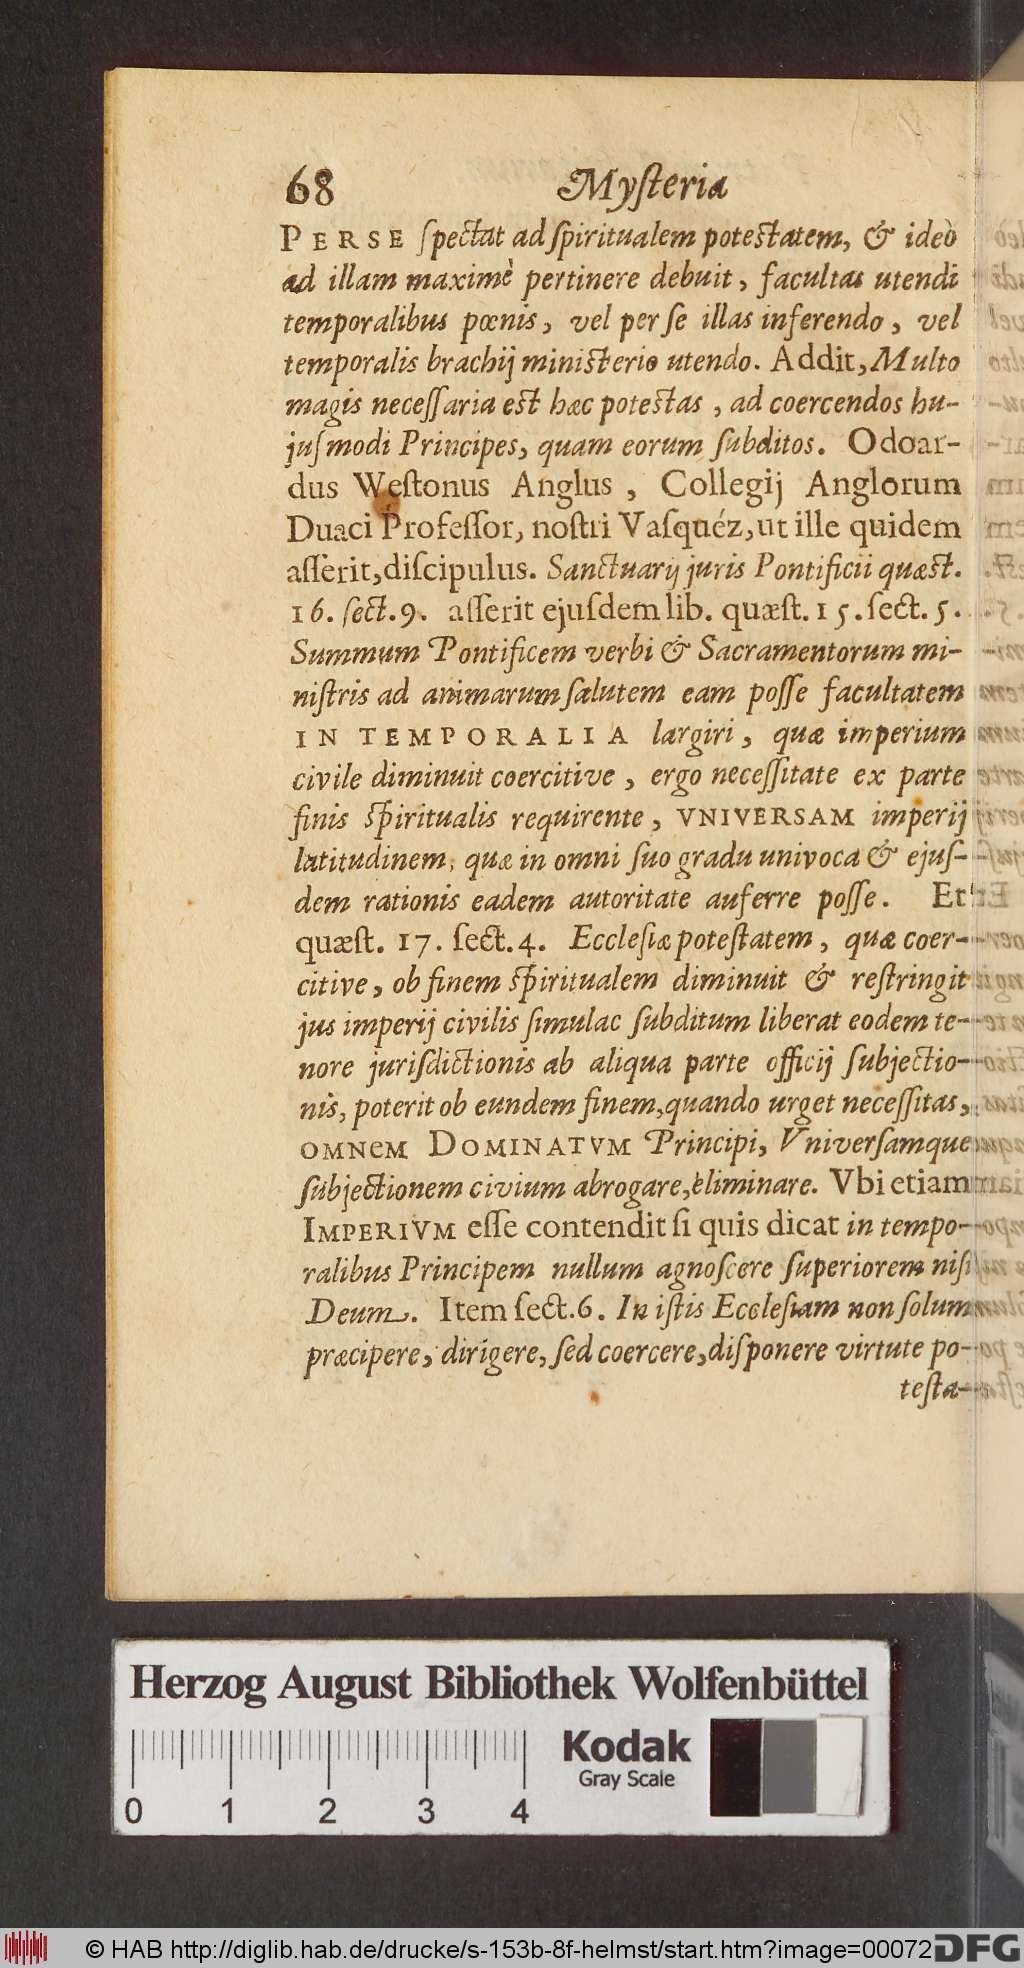 68 Myſteria
PERSE ſpectat ad ſpiritualem poteſtatem, & ideò
ad illam maximè pertinere debuit, facultas utendi
temporalibus pœnis, vel per ſe illas inferendo, vel
temporalis brachij miniſterio utendo. Addit, Multo
magis neceſſaria eſt hæc poteſtas, ad coercendos hu-
juſmodi Principes, quam eorum ſubditos. Odoar-
dus Weſtonus Anglus, Collegij Anglorum
Duaci Profeſſor, noſtri Vaſquéz, ut ille quidem
aſſerit, diſcipulus. Sanctuarij juris Pontificii quæſt.
16. ſect. 9. aſſerit ejuſdem lib. quæſt. 15. ſect. 5.
Summum Pontificem verbi & Sacramentorum mi-
niſtris ad animarum ſalutem eam poſſe facultatem
IN TEMPORALIA largiri, quæ imperium
civile diminuit coercitive, ergo neceſſitate ex parte
finis ſpiritualis requirente, VNIVERSAM imperij
latitudinem, quæ in omni ſuo gradu univoca & ejuſ-
dem rationis eadem autoritate auferre poſſe. Et
quæſt. 17. ſect. 4. Eccleſiæ poteſtatem, quæ coer-
citive, ob finem ſpiritualem diminuit & reſtringit
jus imperij civilis ſimulac ſubditum liberat eodem te-
nore juriſdictionis ab aliqua parte officij ſubjectio-
nis, poterit ob eundem finem, quando urget neceſſitas,
OMNEM DOMINATVM Principi, Vniverſamque
ſubjectionem civium abrogare, eliminare. Vbi etiam
IMPERIVM eſſe contendit ſi quis dicat in tempo-
ralibus Principem nullum agnoſcere ſuperiorem niſi
Deum. Item ſect. 6. In iſtis Eccleſiam non ſolum
præcipere, dirigere, ſed coercere, diſponere virtute po-
teſta-
Herzog August Bibliothek Wolfenbüttel
Kodak
Gray Scale
0 1 2 3 4
© HAB http://diglib.hab.de/drucke/s-153b-8f-helmst/start.htm?image=00072
DFG